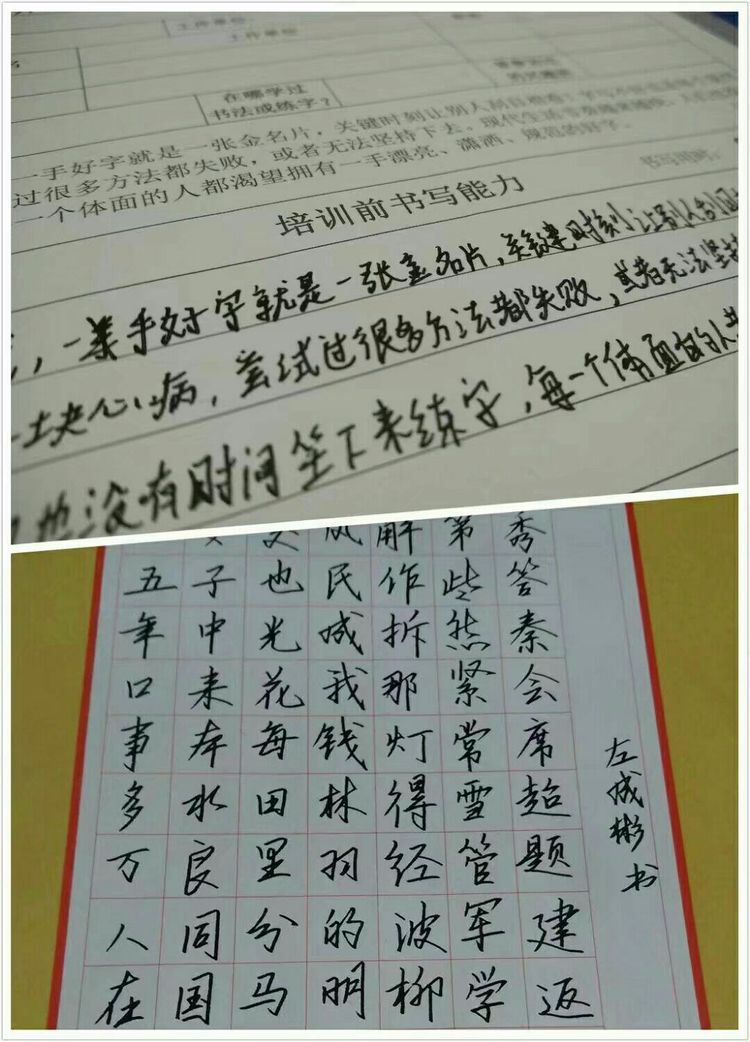 工作单位
工作单位
在哪学过
书法或练字?
一手好字就是一张金名片,关键时刻让别人刮目相看
过很多方法都失败,或者无法坚持下去。现代生活
一个体面的人都渴望拥有一手漂亮、潇洒、规范的好字。
书写用时:
培训前书写能力
,一笔手好字就是一张金名片,关键时刻让别人刮目
一块心病,尝试过很多方法都失败,或者无法坚持
也没有时间坐下来练字,每一个体面的人
解第秀
五子也民作些答
年中光城拆然秦
口来花我那紧会
事本每钱灯常席
多水田林得雪超
万良里羽经管题
人同分的波军建
在国马明柳学返
左成彬书